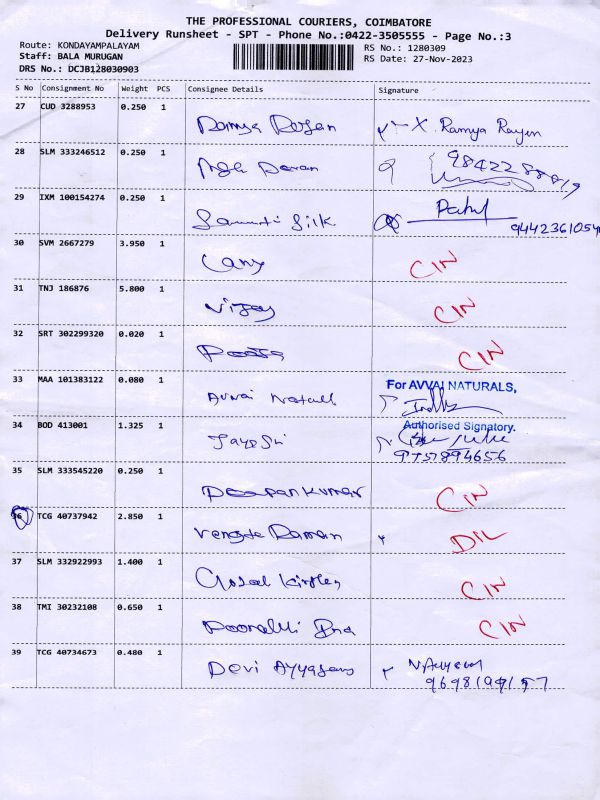 THE PROFESSIONAL COURIERS, COIMBATORE
Delivery Runsheet - SPT - Phone No.:0422-3505555 - Page No.:3
Route: KONDAYAMPALAYAM RS No.: 1280309
Staff: BALA MURUGAN RS Date: 27-Nov-2023
DRS No.: DCJB128030903
S No Consignment No Weight PCS Consignee Details Signature
27 CUD 3288953 0.250 1
Ramya Rajan X. Ramya Rayen
28 SLM 333246512 0.250 1
29 IXM 100154274 0.250 1
Silk 9442361054
30 SVM 2667279 3.950 1
CIN
31 TNJ 186876 5.800 1
Vijay CIN
32 SRT 302299320 0.020 1
Pooja CIN
33 MAA 101383122 0.080 1
For AVVAI NATURALS,
Avvai
34 BOD 413001 1.325 1 Authorised Signatory.
JayaSri
35 SLM 333545220 0.250 1
Deepan Kumar CIN
36 TCG 40737942 2.850 1
Raman DIL
37 SLM 332922993 1.400 1
CIN
38 TMI 30232108 0.650 1
CIN
39 TCG 40734673 0.480 1
Devi